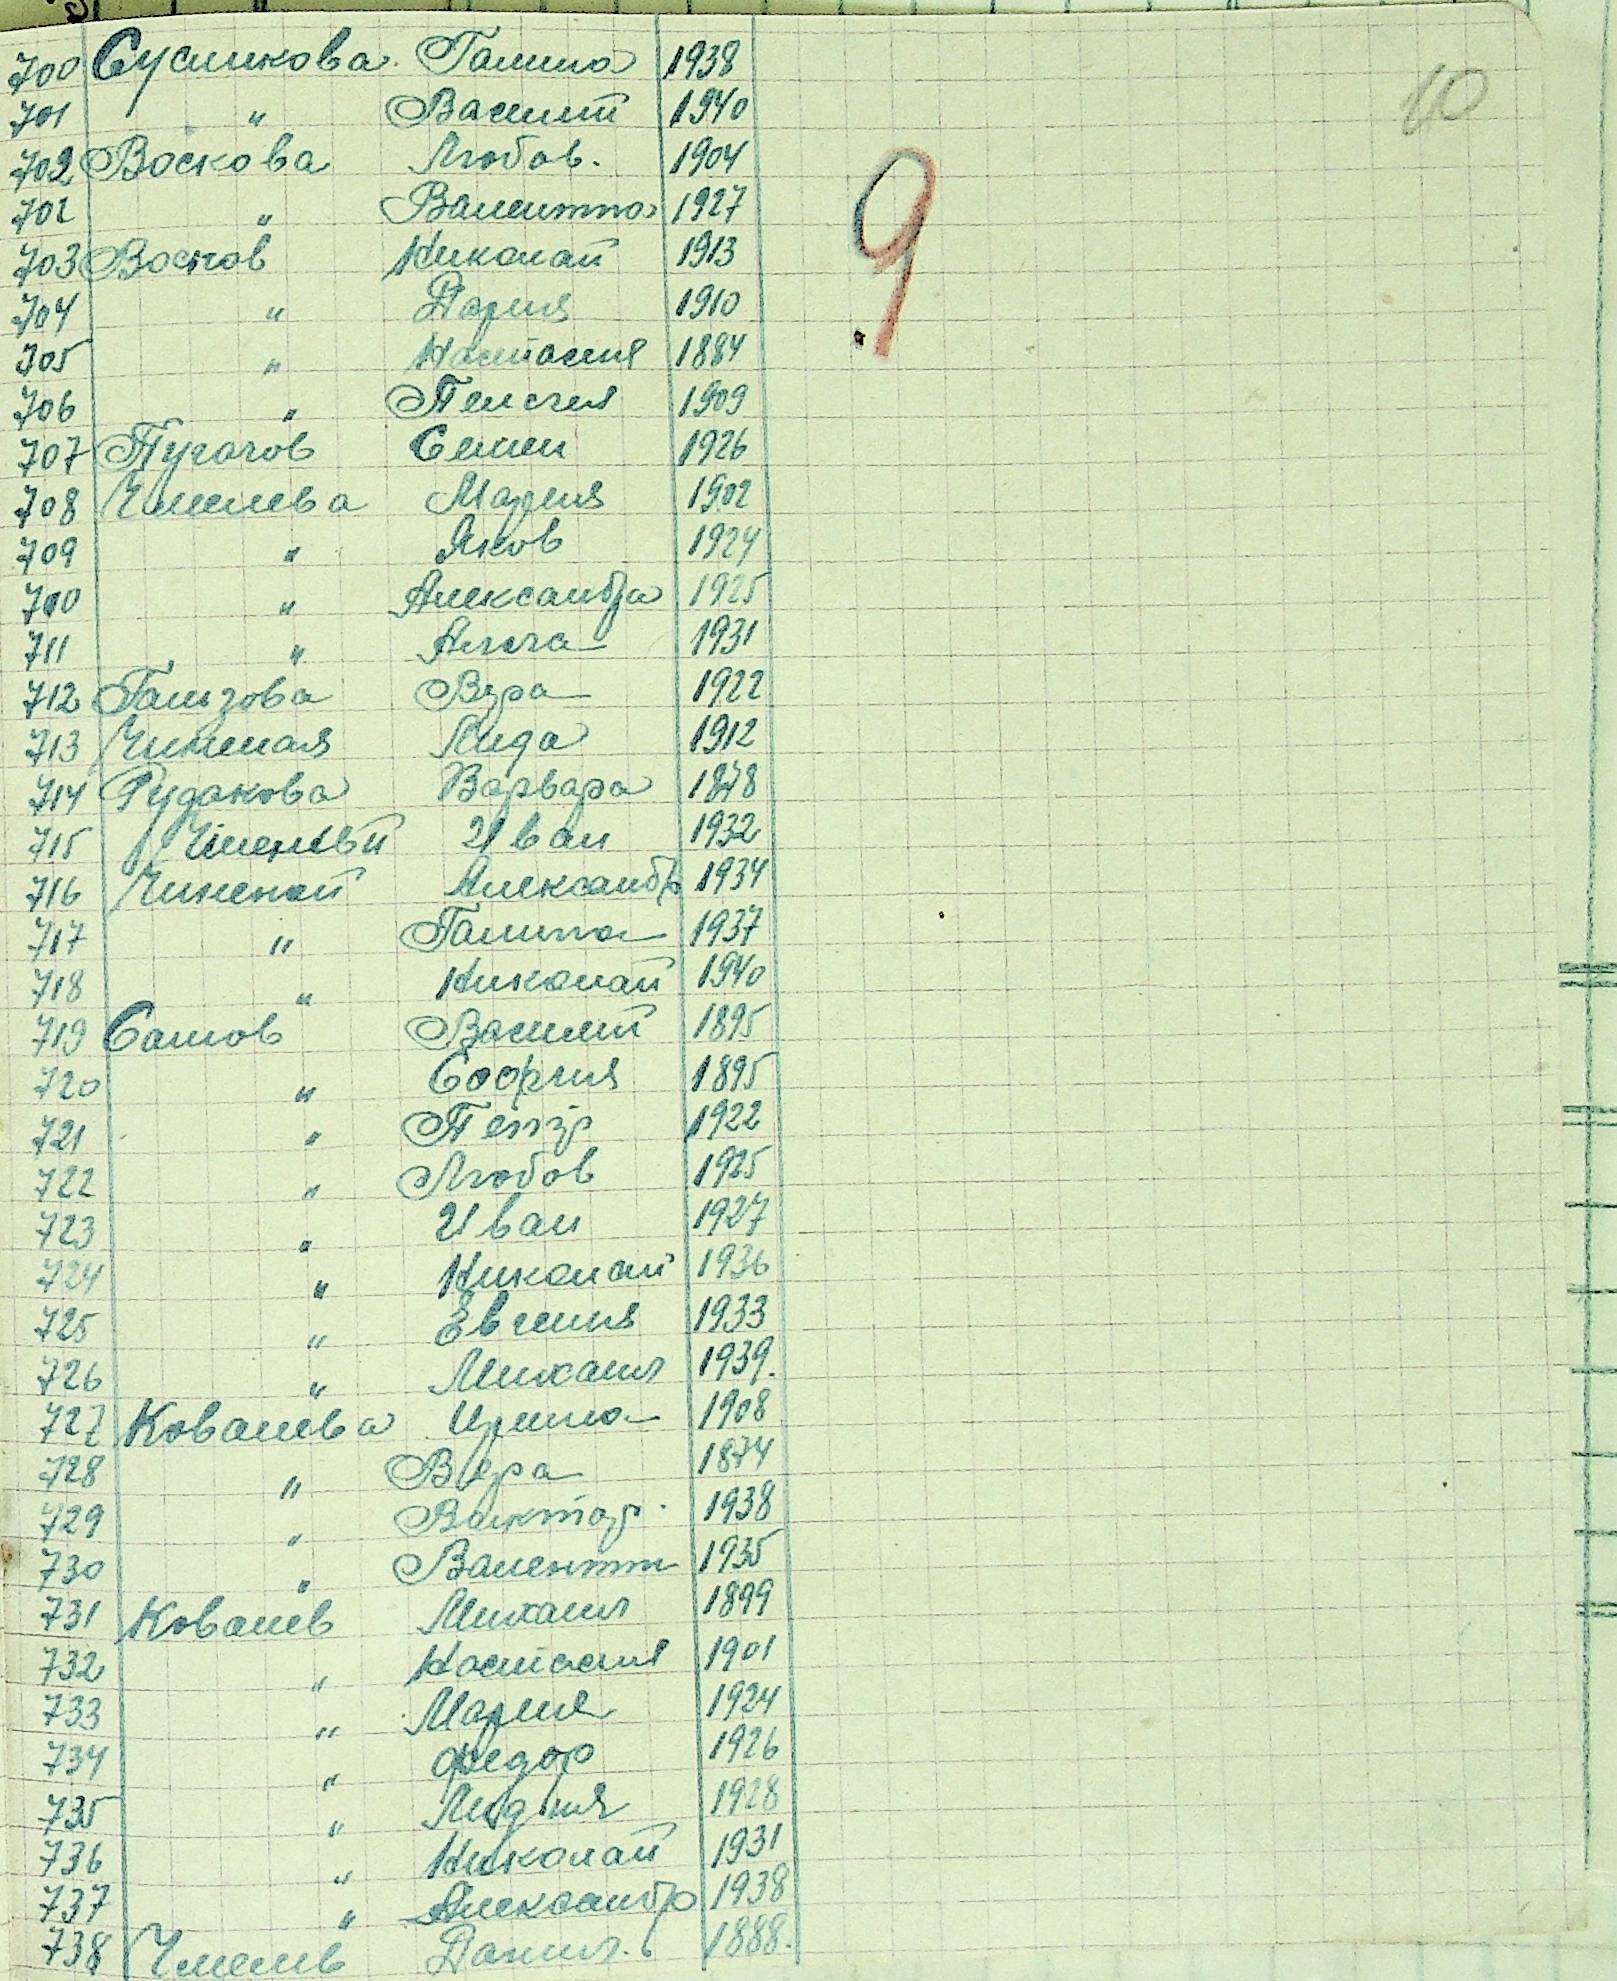 10
9
700 Сусликова Галина 1938
701 " Василий 1940
702 Воскова Любов. 1904
702 " Валентина 1927
703 Восков Николай 1913
704 " Дария 1910
705 " Настасия 1884
706 " Пелогия 1909
707 Пугачов Семен 1926
708 Чмелева Мария 1902
709 " Яков 1924
700 " Александра 1925
711 " 1931
712 Вера 1922
713 Лида 1912
714 Рудакова Варвара 1878
715 Иван 1932
716 Александр 1934
717 " Галина 1937
718 " Николай 1940
719 Сашов Василий 1895
720 " София 1895
721 " Петр 1922
722 " Любов 1925
723 " Иван 1927
724 " Николай 1936
725 " Евгения 1933
726 " Михаил 1939.
727 Ковалева Ирина 1908
728 " Вера 1874
729 " Виктор 1938
730 " Валентин 1935
731 Ковалев Михаил 1899
732 " Настасия 1901
733 " Мария 1924
734 " Федор 1926
735 " Лидия 1928
736 " Николай 1931
737 " Александр 1938
738 Чмелев Данил. 1888.